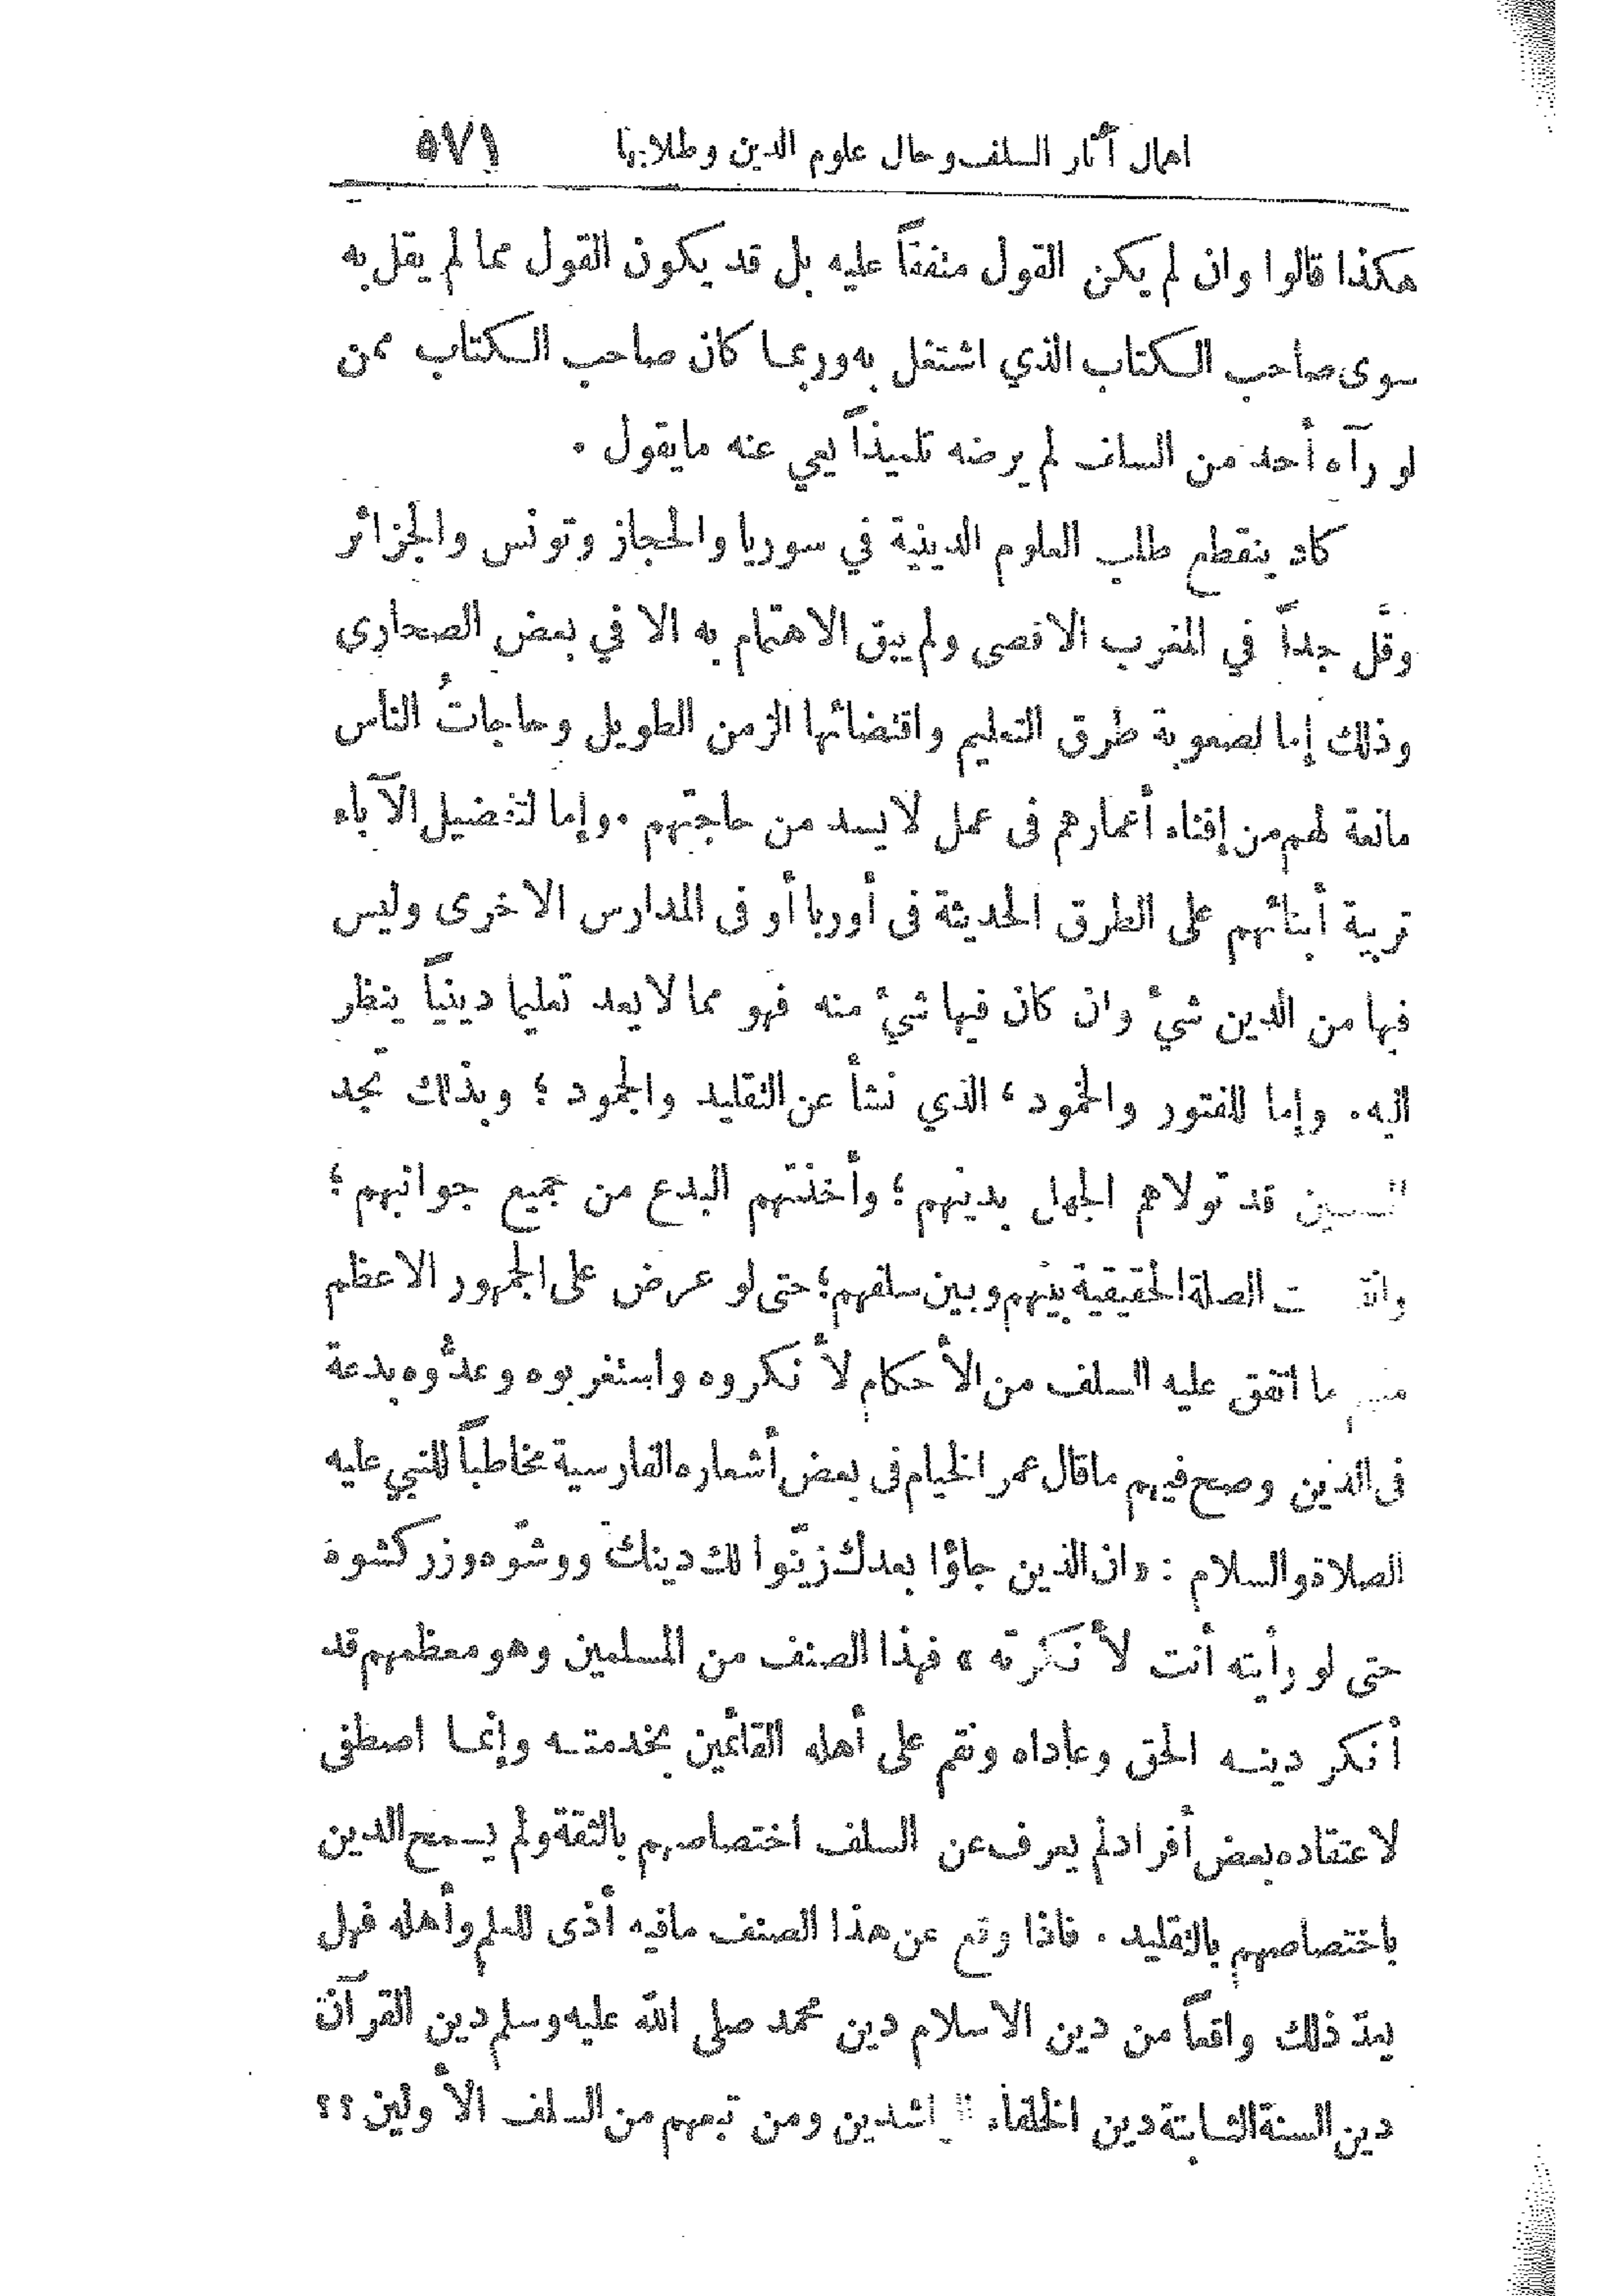 اهمال آثار السلف وحال علوم الدين وطلابها ٥٧١
هكذا قالوا وان لم يكن القول متفقاً عليه بل قد يكون القول مما لم يقل به
سوى صاحب الكتاب الذي اشتغل به وربما كان صاحب الكتاب ممن
لو رآه أحد من السلف لم يرضه تلميذاً يعي عنه مايقول .
كاد ينقطع طلب العلوم الدينية في سوريا والحجاز وتونس والجزائر
وقلَّ جداً في المغرب الاقصى ولم يبق الاهتمام به الا في بعض الصحارى
وذلك إما لصعوبة طرق التعليم واقتضائها الزمن الطويل وحاجاتُ الناس
مانعة لهم من إفناء أعمارهم فى عمل لايسد من حاجتهم . وإما لتفضيل الآباء
تربية أبنائهم على الطرق الحديثة فى أوربا أو فى المدارس الاخرى وليس
فيها من الدين شيء وان كان فيها شيء منه فهو مما لايعد تعليما دينياً ينظر
اليه . وإما للفتور والخمود ؛ الذي نشأ عن التقليد والجمود ؛ وبذلك تجد
قد تولاهم الجهل بدينهم ؛ وأخذتهم البدع من جميع جوانبهم ؛
الصلة الحقيقية بينهم وبين سلفهم ؛ حتى لو عرض على الجمهور الاعظم
ما اتفق عليه السلف من الأحكام لأنكروه واستغربوه وعدُّوه بدعة
فى الدين وصح فيهم ماقال عمر الخيام فى بعض أشعاره الفارسية مخاطباً للنبي عليه
الصلاة والسلام : «ان الذين جاؤا بعدك زيّنوا لك دينك ووشّوه وزركشوه
حتى لو رأيته أنت لأنكرته » فهذا الصنف من المسلمين وهو معظمهم قد
أنكر دينه الحق وعاداه ونقم على أهله القائمين بخدمته وإنما اصطفى
لاعتقاده بعض أفراد لم يعرف عن السلف اختصاصهم بالثقة ولم يسمح الدين
باختصاصهم بالتقليد . فاذا وقع عن هذا الصنف مافيه أذى للعلم وأهله فهل
يعدّ ذلك واقعاً من دين الاسلام دين محمد صلى الله عليه وسلم دين القرآن
دين السنة الثابتة دين الخلفاء الراشدين ومن تبعهم من السلف الأولين ؟؟